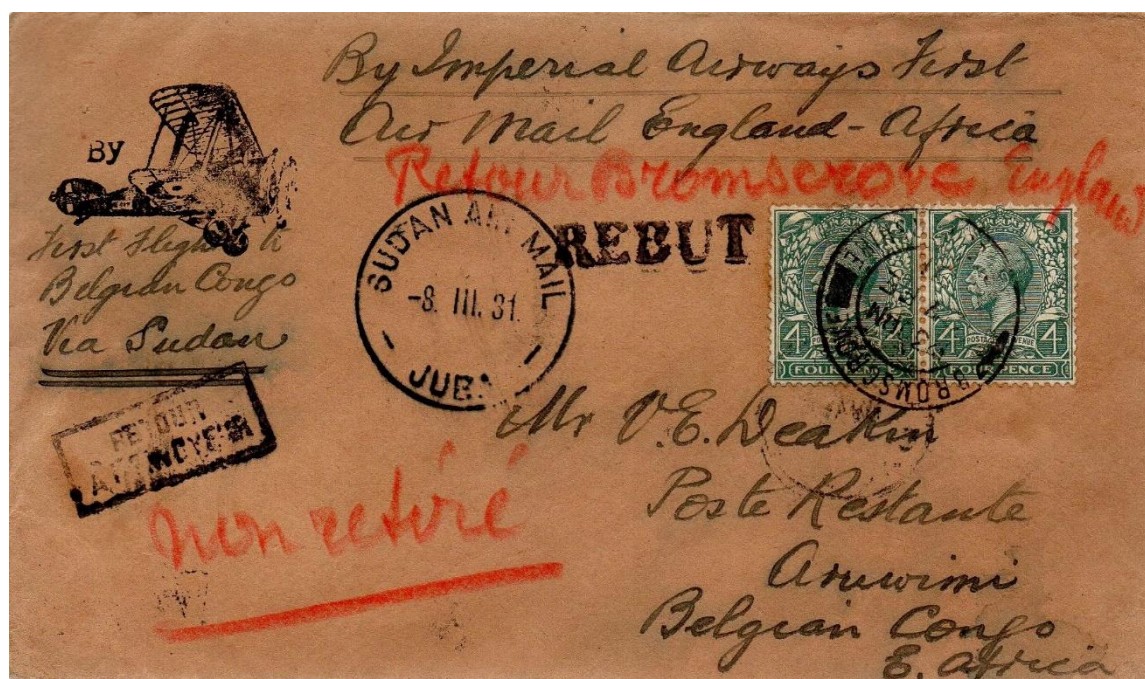 By Imperial Airways First
Air Mail England - Africa
Retour Bromsgrove England
By
First Flight to
Belgian Congo
Via Sudan
SUDAN AIR MAIL
-8. III. 31.
JUBA
REBUT
4 4
POSTAGE REVENUE
FOUR PENCE FOUR PENCE
BROMSGROVE
RETOUR
A L'ENVOYEUR
Mr V. E. Deakin
Poste Restante
Aruwimi
Belgian Congo
E. Africa
non retiré